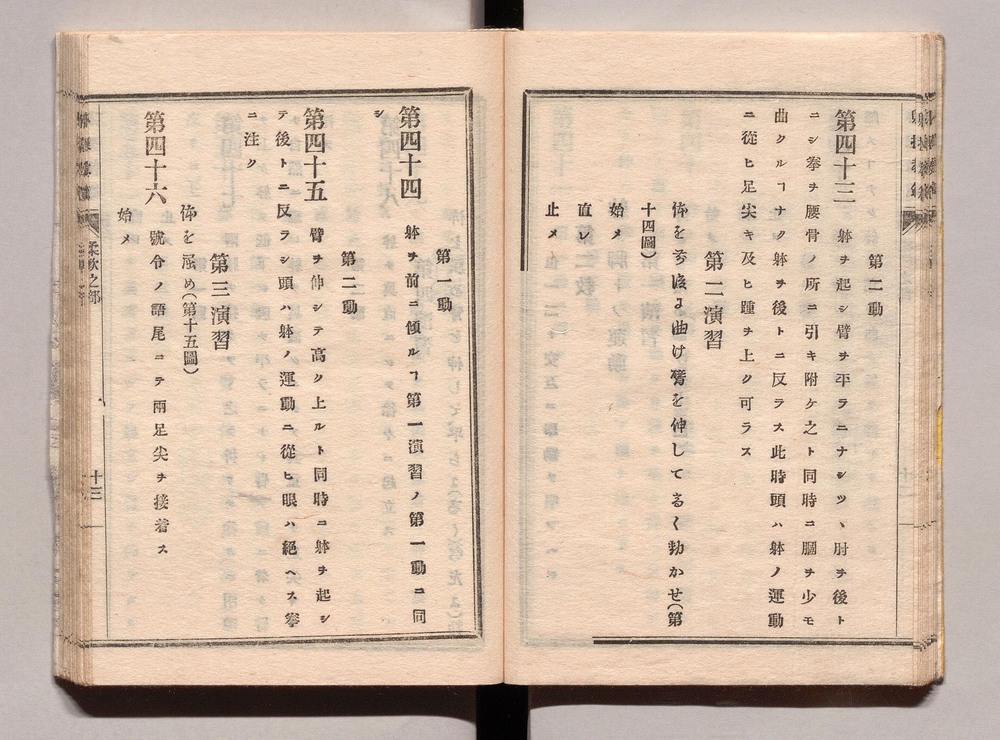 第二動
第四十三 躰ヲ起シ臂ヲ平ラニナシツヽ肘ヲ後ト
ニシ拳ヲ腰骨ノ所ニ引キ附ケ之ト同時ニ膕ヲ少モ
曲クルヿナク躰ヲ後トニ反ラス此時頭ハ躰ノ運動
ニ從ヒ足尖キ及ヒ踵ヲ上ク可ラス
第二演習
十四圖)
始メ
直レ
止メ
第一動
第四十四 躰ヲ前ニ傾ルヿ第一演習ノ第一動ニ同
シ
第二動
第四十五 臂ヲ伸シテ高ク上ルト同時ニ躰ヲ起シ
テ後トニ反ラシ頭ハ躰ノ運動ニ從ヒ眼ハ絕ヘス拳
ニ注ク
第三演習
体を屈め(第十五圖)
始メ
第四十六 號令ノ語尾ニテ兩足尖ヲ接着ス
柔軟之部
十三